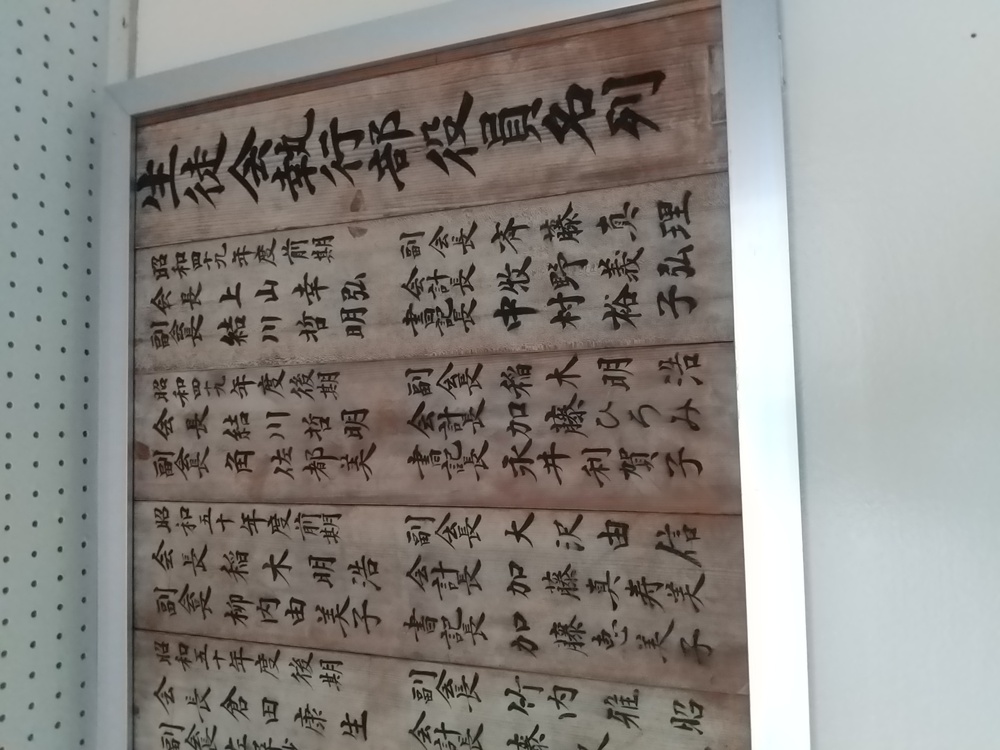 生徒会執行部役員名列
昭和四十九年度前期
会長 上山幸弘
副会長 結川哲明
副会長 斉藤真理
会計長 牧野義弘
書記長 中村裕子
昭和四十九年度後期
会長 結川哲明
副会長 角佐都美
副会長 稲木明浩
会計長 加藤ひろみ
書記長 永井利賀子
昭和五十年度前期
会長 稲木明浩
副会長 柳内由美子
副会長 大沢由信
会計長 加藤真寿美
書記長 加藤恵美子
昭和五十年度後期
会長 倉田康生
副会長
副会長 竹内雅昭
会計長